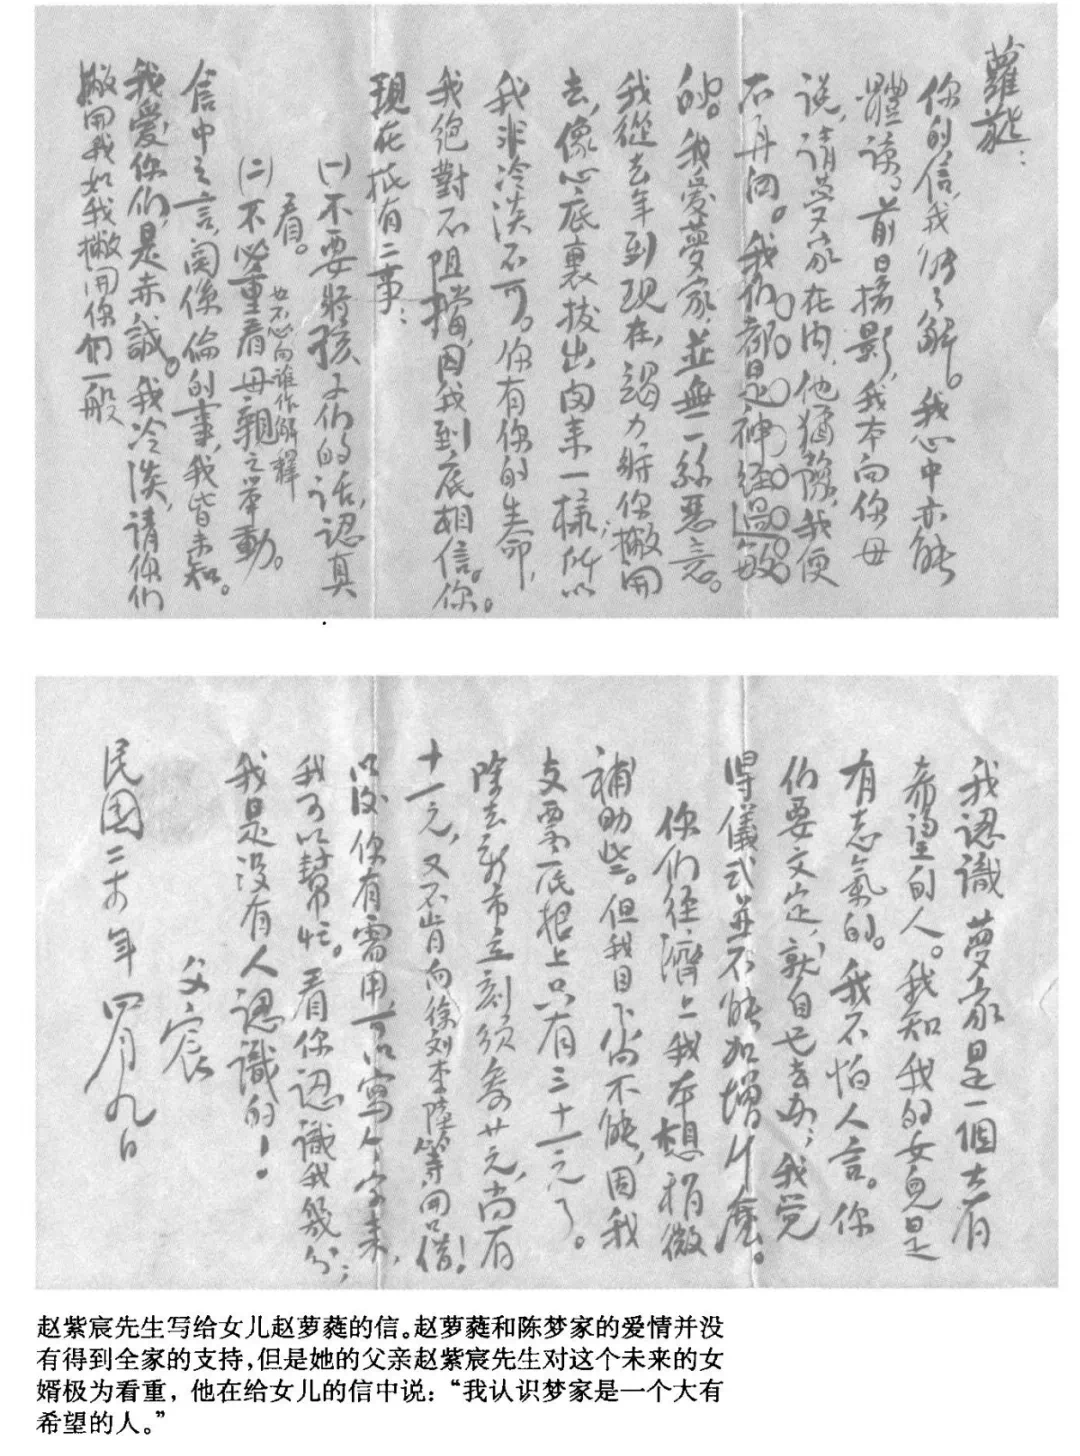 蘿蕤：
你的信，我能了解。我心中亦能
體諒。前日攝影，我本向你母
說，請夢家在內，他猶豫，我便
不再問。我們都是神經過敏
的。我愛夢家，並無一絲惡意。
我從去年到現在，竭力將你撇開
去，像心底裏拔出肉來一樣；所以
我非冷淡不可。你有你的生命，
我絕對不阻擋，因我到底相信你。
現在祇有二事：
(一)不要將孩子們的話，認真
看。
(二)不必重看母親之举動。
也不必向谁作解釋
信中之言，関係倫的事，我皆未知。
我愛你們，是赤誠。我冷淡，請你們
撇開我如我撇開你們一般
我認識夢家是一個大有
希望的人。我知我的女兒是
有志氣的。我不怕人言。你
們要文定，就自己去办；我覚
得儀式并不能加增什麼。
你們経濟上我本想稍微
補助些。但我目下尚不能，因我
支票底根上只有三十一元了。
除去新市立刻须叁廿元，尚有
十一元，又不肯向徐刘李陸等開口借！
以後你有需用，可以寫个字来，
我可以幫忙。看你認識我幾分；
我是没有人認識的！
父宸
民國二十年四月九日
赵紫宸先生写给女儿赵萝蕤的信。赵萝蕤和陈梦家的爱情并没
有得到全家的支持，但是她的父亲赵紫宸先生对这个未来的女
婿极为看重，他在给女儿的信中说：“我认识梦家是一个大有
希望的人。”